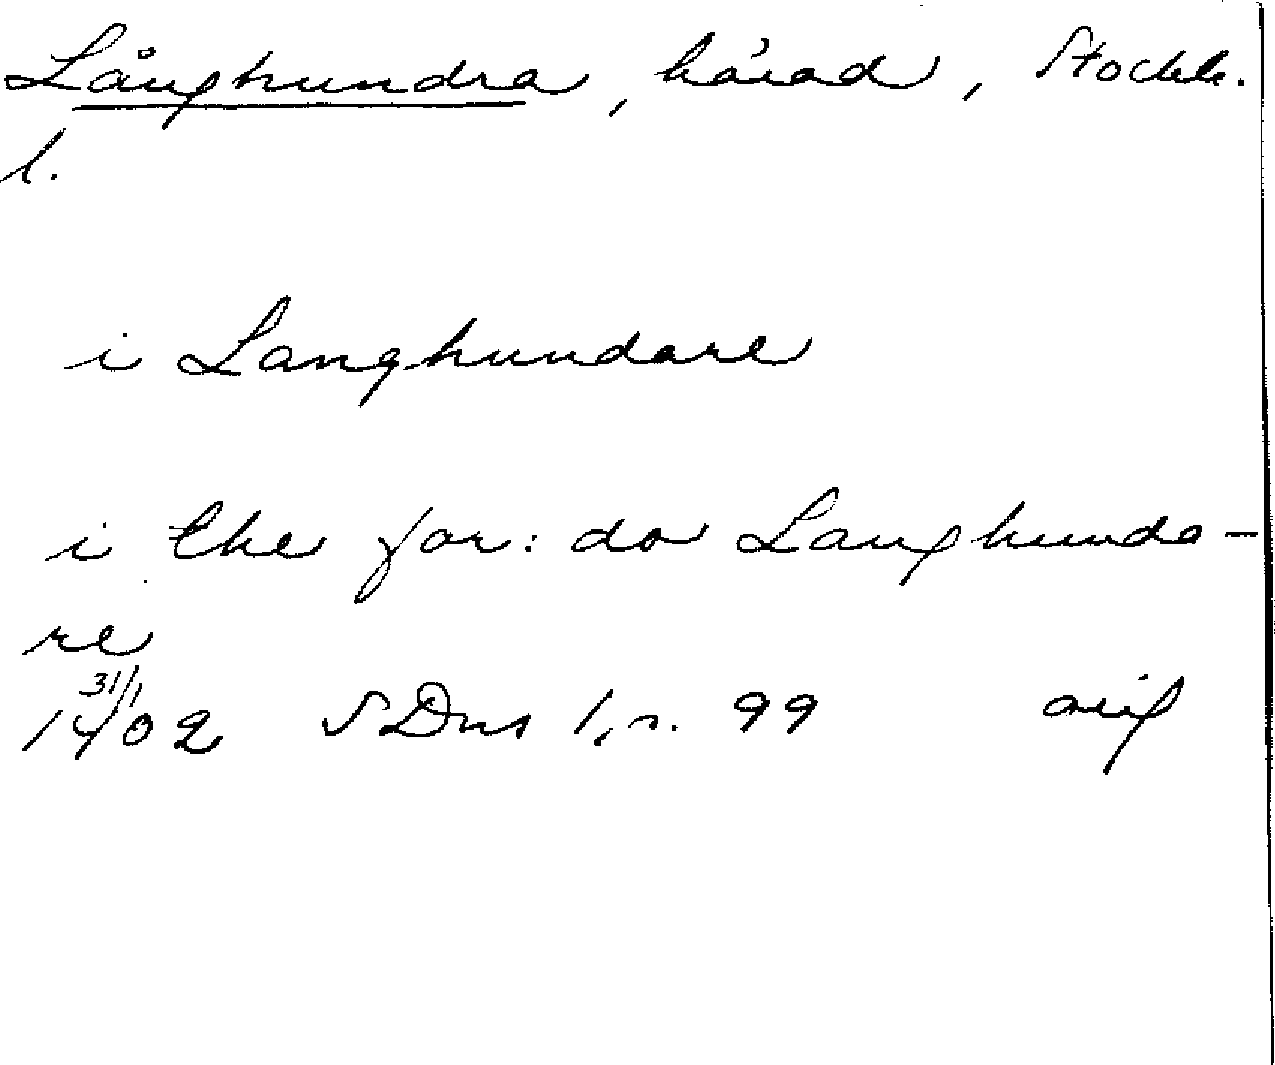 Långhundra, härad, Stockh.
l.
i Langhundare
i the for: da Langhunda-
re
31/1 1402 SDns 1, s. 99 orig